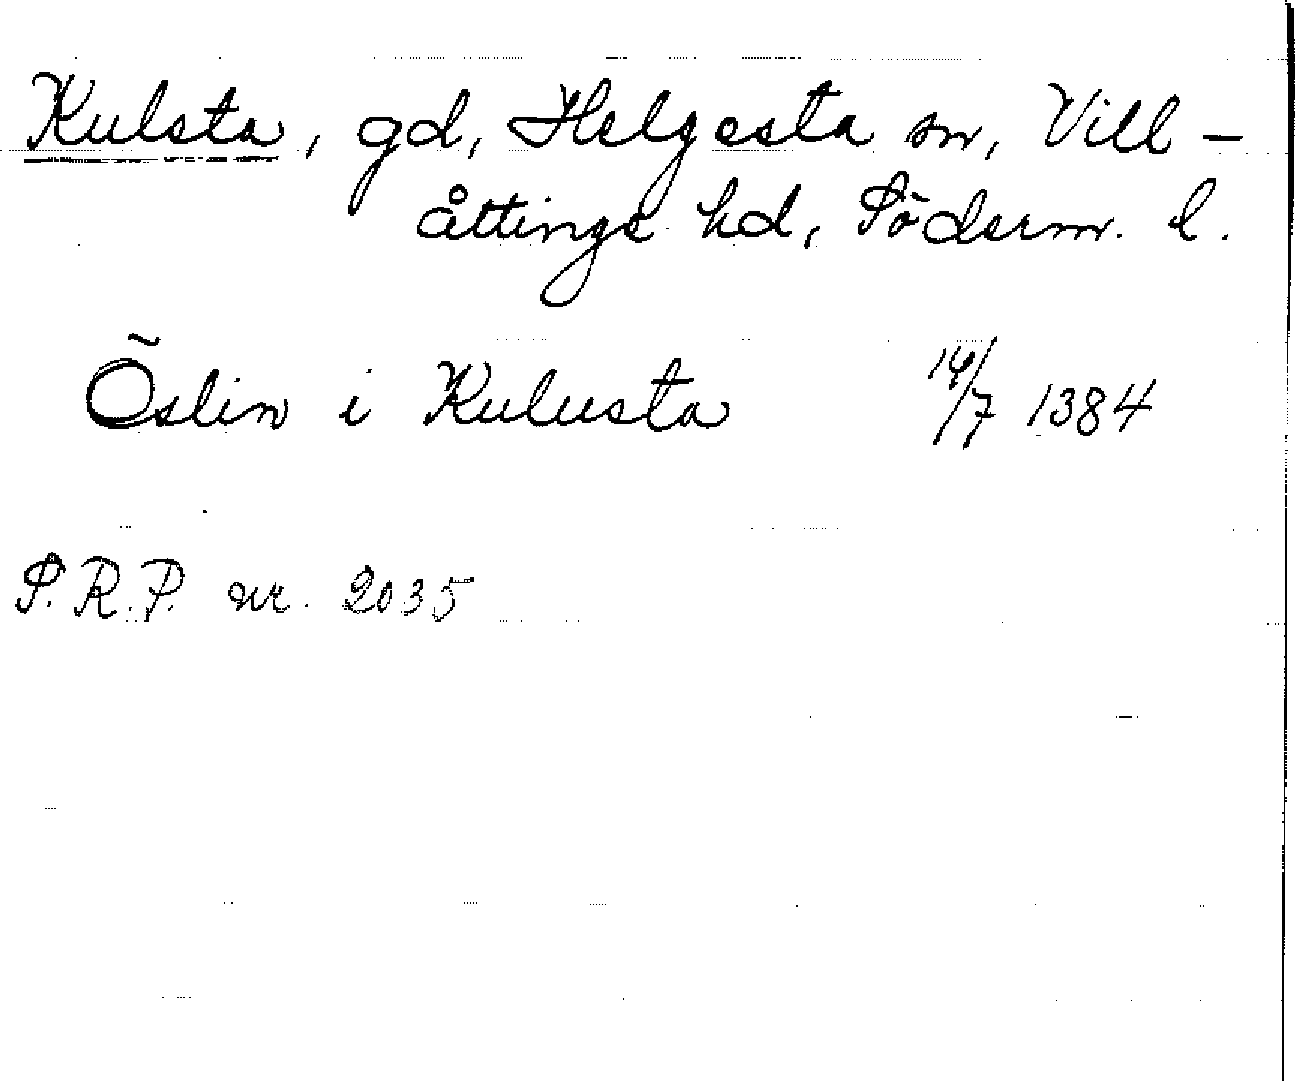 Kulsta, gd, Helgesta sn, Vill-
åttinge hd, Söderm. l.
Öslin i Kulusta 14/7 1384
S.R.P. nr. 2035